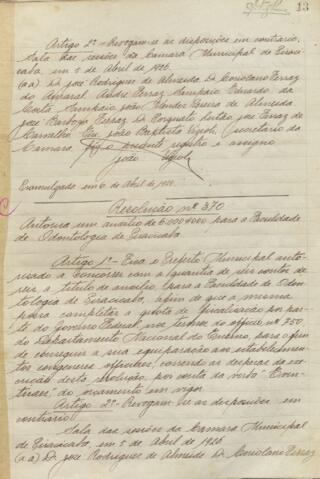 13
Artigo 2º - Revogam-se as disposições em contrario.
Sala das sessões da Camara Municipal de Piracicaba, em 5 de Abril de 1926.
(a a) Dr José Rodrigues de Almeida, Dr Coriolano Ferraz
do Amaral, André Ferraz Sampaio, Eduardo da
Costa Sampaio, João Mendes Pereira de Almeida,
José Barbosa Ferraz, Dr Torquato Leitão, José Ferraz de
Carvalho. Eu, João Baptista Vizioli, Secretario da
Camara, fiz o presente registro e assigno
João Vizioli
Promulgada em 6 de Abril de 1926.
Resolução nº 370
Autorisa um auxilio de 6:000$000 para a Faculdade
de Odontologia de Piracicaba
Artigo 1º - Fica o Prefeito Municipal auto-
risado a concorrer com a quantia de seis contos de
reis, a titulo de auxilio, para a Faculdade de Odon-
tologia de Piracicaba, afim de que a mesma
possa completar a quota de fiscalisação por par-
te do Governo Federal, nos termos do officio nº 750
do Departamento Nacional do Ensino, para o fim
de conseguir a sua equiparação aos estabelecimen-
tos congeneres officiaes, correndo as despezas da exe-
cução desta resolução, por conta da verba "Even-
tuaes", do orçamento em vigor.
Artigo 2º - Revogam-se as disposições em
contrario.
Sala das sessões da Camara Municipal
de Piracicaba, em 5 de Abril de 1926.
(a a) Dr José Rodrigues de Almeida, Dr Coriolano Ferraz